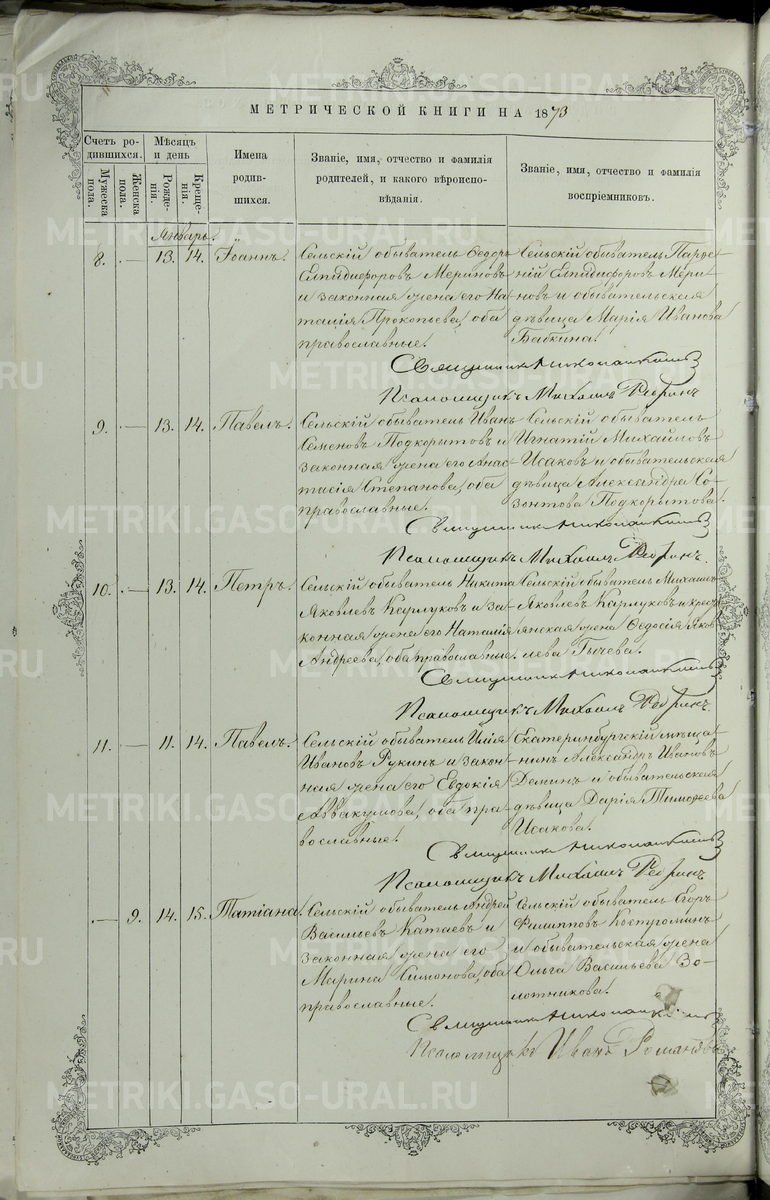 МЕТРИЧЕСКОЙ КНИГИ НА 1873
Счетъ ро-
дившихся.
Мужеска
пола.
Женска
пола.
Мѣсяцъ
и день
Рожде-
нія.
Креще-
нія.
Имена
родив-
шихся.
Званіе, имя, отчество и фамилія
родителей, и какого вѣроиспо-
вѣданія.
Званіе, имя, отчество и фамилія
воспріемниковъ.
Январь.
8. — 13. 14. Іоаннъ.
Сельскій обыватель Ѳедоръ
Елпидифоровъ Мериновъ
и законная жена его На-
талія Прокопьева, оба
православные.
Сельскій обыватель Парѳе-
ній Елпидифоровъ Мери-
новъ и обывательская
дѣвица Марія Иванова
Бабкина.
Священникъ
Псаломщикъ Михаилъ
9. — 13. 14. Павелъ.
Сельскій обыватель Иванъ
Семеновъ Подкорытовъ и
законная жена его Анас-
тасія Степанова, оба
православные.
Сельскій обыватель
Игнатій Михайловъ
Исаковъ и обывательская
дѣвица Александра Со-
зонтова Подкорытова.
Священникъ
Псаломщикъ Михаилъ
10. — 13. 14. Петръ.
Сельскій обыватель Никита
Яковлевъ Карлуковъ и за-
конная жена его Наталія
Андреева, оба православные.
Сельскій обыватель Михаилъ
Яковлевъ Карлуковъ и крес-
янская жена Ѳедосія Яков-
лева Гычева.
Священникъ
Псаломщикъ Михаилъ
11. — 11. 14. Павелъ.
Сельскій обыватель Илія
Ивановъ Рукинъ и закон-
ная жена его Евдокія
Аввакумова, оба пра-
вославные.
Екатеринбургскій мѣща-
нинъ Александръ Ивановъ
Деминъ и обывательская
дѣвица Дарія Тимоѳеева
Исакова.
Священникъ
Псаломщикъ Михаилъ
— 9. 14. 15. Татіана.
Сельскій обыватель Андрей
Васильевъ Катаевъ и
законная жена его
Марина Симонова, оба
православные.
Сельскій обыватель Егоръ
Филипповъ Костроминъ
и обывательская жена
Ольга Васильева Зо-
лотникова.
Священникъ
Псаломщикъ Иванъ Романовъ
METRIKI.GASO-URAL.RU